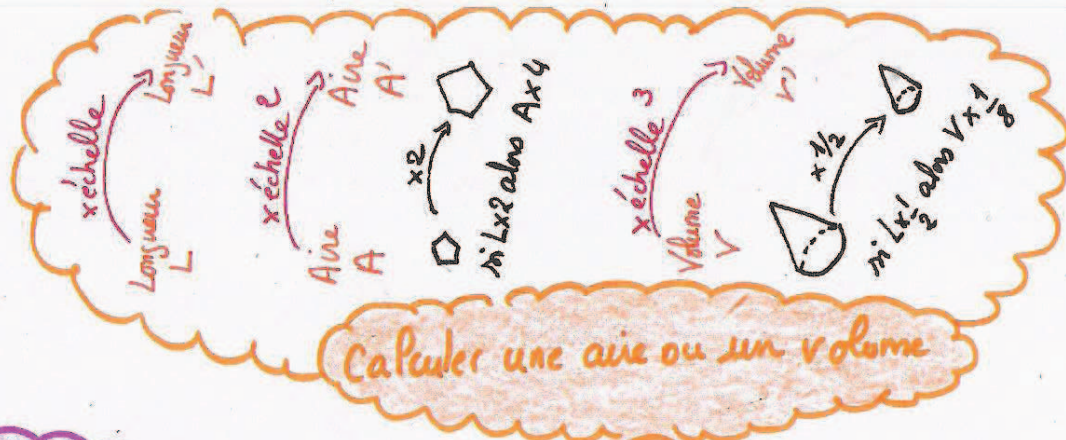 Longueur
L
x échelle
Longueur
L'
Aire
A
x échelle 2
Aire
A'
x2
si Lx2 alors Ax4
Volume
V
x échelle 3
Volume
V'
x 1/2
si Lx 1/2 alors V x 1/8
Calculer une aire ou un volume